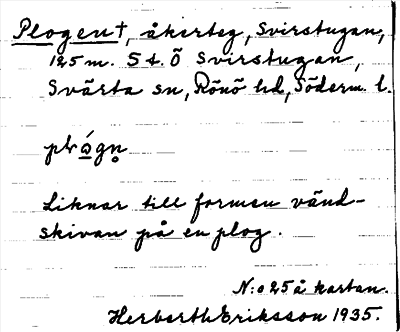 Plogen †, åkerteg, Svirstugan,
125 m. S t. Ö Svirstugan,
Svärta sn, Rönö hd, Söderm. l.
Liknar till formen vänd-
skivan på en plog.
N:o 25 å kartan.
Herbert Eriksson 1935.